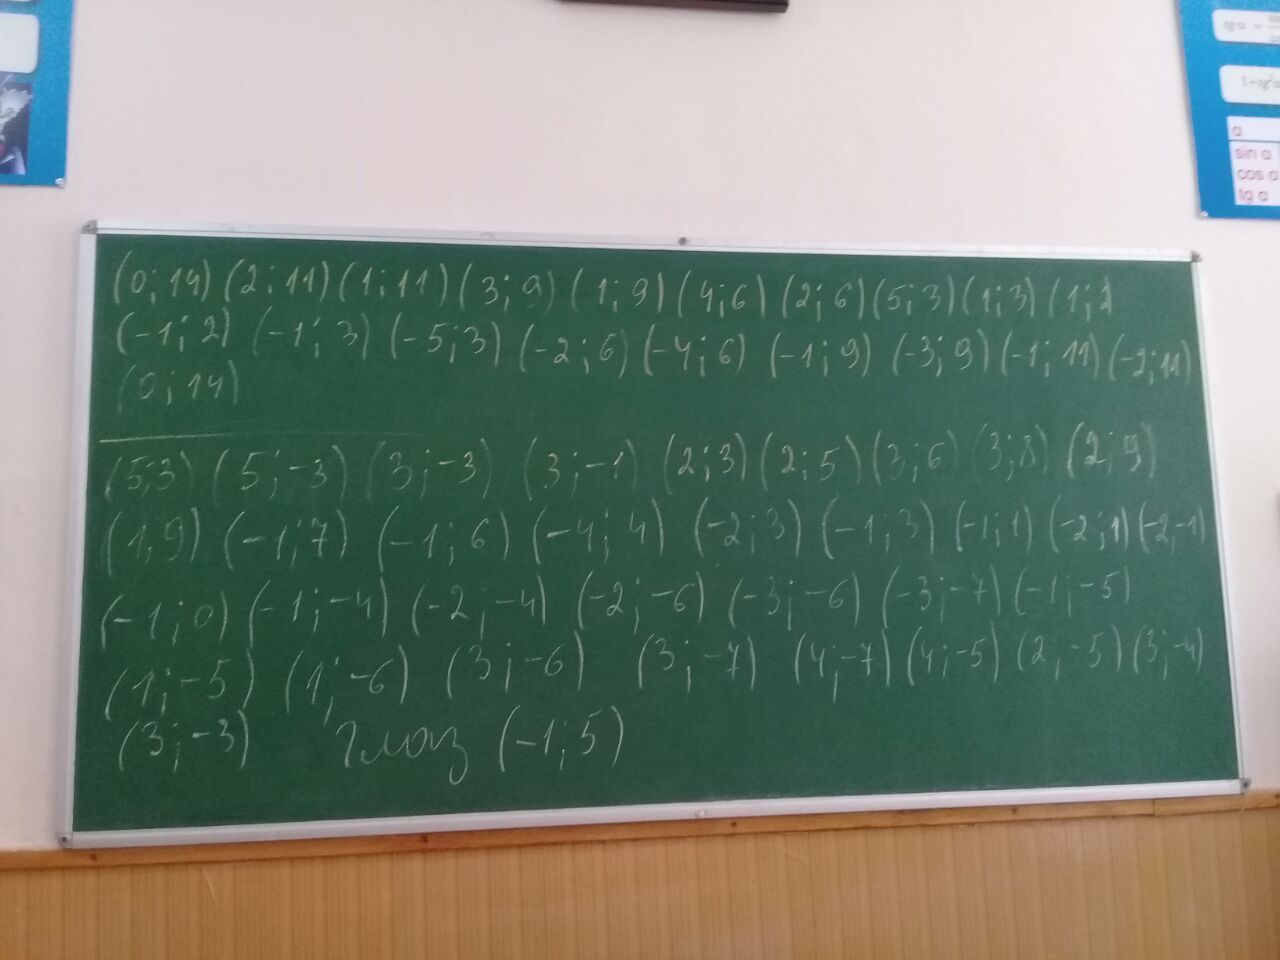 (0;14) (2;11) (1;11) (3;9) (1;9) (4;6) (2;6) (5;3) (1;3) (1;2
(-1;2) (-1;3) (-5;3) (-2;6) (-4;6) (-1;9) (-3;9) (-1;11) (-2;11)
(0;14)
(5;3) (5;-3) (3;-3) (3;-1) (2;3) (2;5) (3;6) (3;8) (2;9)
(1,9) (-1;7) (-1;6) (-4;4) (-2;3) (-1;3) (-1;1) (-2;1) (-2;-1)
(-1;0) (-1;-4) (-2;-4) (-2;-6) (-3;-6) (-3;-7) (-1;-5)
(1;-5) (1;-6) (3;-6) (3;-7) (4;-7) (4;-5) (2;-5) (3;-4)
(3;-3) глаз (-1;5)
tg α =
1+tg²α
a
sin α
cos α
tg α